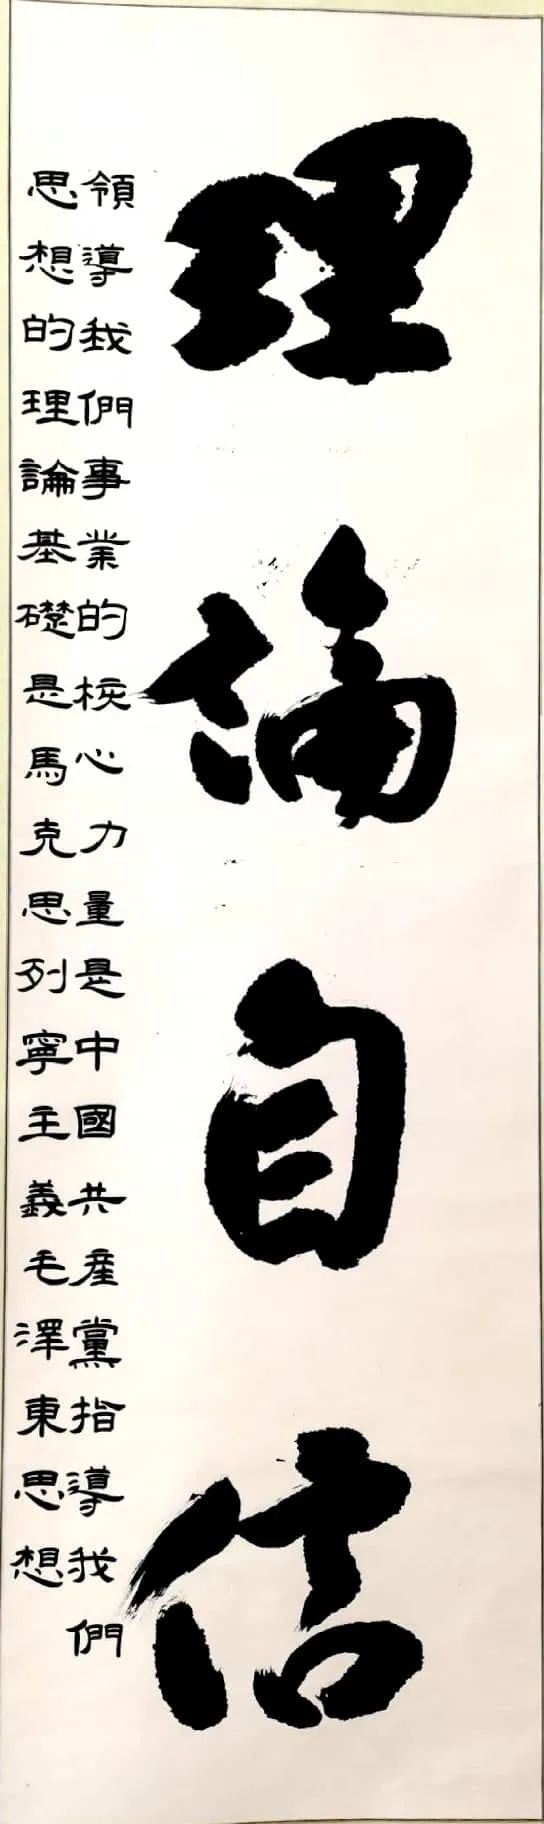 理論自信
領導我們事業的核心力量是中國共產黨指導我們
思想的理論基礎是馬克思列寧主義毛澤東思想